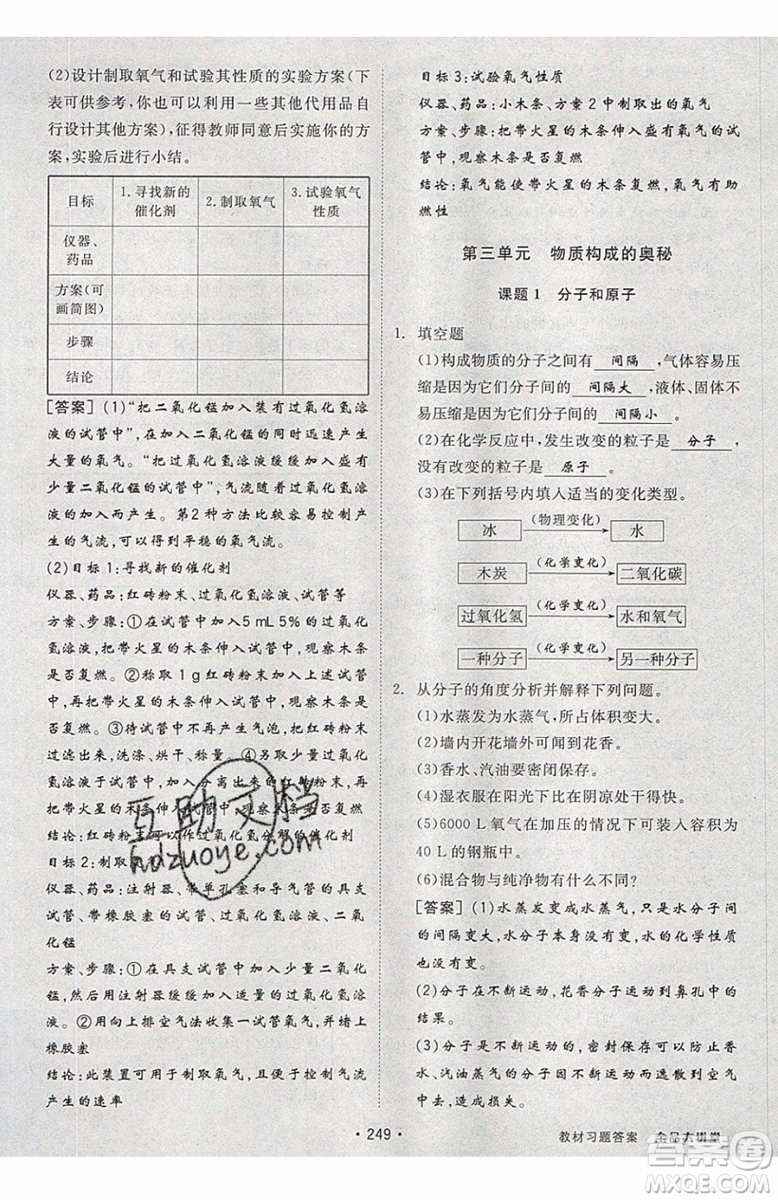 (2)设计制取氧气和试验其性质的实验方案(下
表可供参考,你也可以利用一些其他代用品自
行设计其他方案),征得教师同意后实施你的方
案,实验后进行小结。
目标
1.寻找新的
催化剂
2.制取氧气
3.试验氧气
性质
仪器、
药品
方案(可
画简图)
步骤
结论
[答案] (1)“把二氧化锰加入装有过氧化氢溶
液的试管中”,在加入二氧化锰的同时迅速产生
大量的氧气。“把过氧化氢溶液缓缓加入盛有
少量二氧化锰的试管中”,气流随过氧化氢溶液
的加入而产生。第2种方法比较容易控制产
生的气流,可以得到平稳的氧气流。
(2)目标1:寻找新的催化剂
仪器、药品:红砖粉末、过氧化氢溶液、试管等
方案、步骤:①在试管中加入5 mL 5%的过氧化
氢溶液,把带火星的木条伸入试管中,观察木条
是否复燃。②称取1 g红砖粉末,加入过氧化
氢溶液,把带火星的木条伸入试管中,观察木条
是否复燃。③待试管中不再产生气泡,把红砖粉末
过滤出来,洗涤、烘干、称量。④另取过氧化
氢溶液于试管中,加入分离出来的红砖粉末,
把带火星的木条伸入试管中,观察木条是否复燃
结论:红砖粉末可以作过氧化氢分解的催化剂
目标2:制取氧气
仪器、药品:注射器、带单孔塞和导气管的具支
试管、带橡胶塞的试管、过氧化氢溶液、二氧化
锰
方案、步骤:①在具支试管中加入少量二氧化
锰,然后用注射器缓缓加入适量的过氧化氢溶
液。②用向上排空气法收集一试管氧气,并堵上
橡胶塞
结论:此装置可用于制取氧气,能控制氧气气流
产生的速率
目标3:试验氧气性质
仪器、药品:小木条、方案2中制取出的氧气
方案、步骤:把带火星的木条伸入盛有氧气的试
管中,观察木条是否复燃
结论:氧气能使带火星的木条复燃,氧气有助
燃性
第三单元 物质构成的奥秘
课题1 分子和原子
1. 填空题
(1)构成物质的分子之间有 间隔 ,气体容易压
缩是因为它们分子间的 间隔大 ,液体、固体不
易压缩是因为它们分子间的 间隔小 。
(2)在化学反应中,发生改变的粒子是 分子 ,
没有改变的粒子是 原子 。
(3)在下列括号内填入适当的变化类型。
冰 (物理变化) 水
木炭 (化学变化) 二氧化碳
过氧化氢 (化学变化) 水和氧气
一种分子 (化学变化) 另一种分子
2. 从分子的角度分析并解释下列问题。
(1)水蒸发为水蒸气,所占体积变大。
(2)墙内开花墙外可闻到花香。
(3)香水、汽油要密闭保存。
(4)湿衣服在阳光下比在阴凉处干得快。
(5)6000 L氧气在加压的情况下可装入容积为
40 L的钢瓶中。
(6)混合物与纯净物有什么不同?
[答案] (1)水蒸发变成水蒸气,只是水分子间
的间隔变大,水分子本身没有变,体积也没
有变。
(2)分子在不断运动,花香分子运动到鼻孔中的
结果。
(3)分子是不断运动的,密封保存可以防止香
水、汽油蒸气的分子不断运动,而扩散到空气
中去,造成损失。
·249·
教材习题答案 全品大讲堂
互助文档
hdzuoye.com
作业精灵